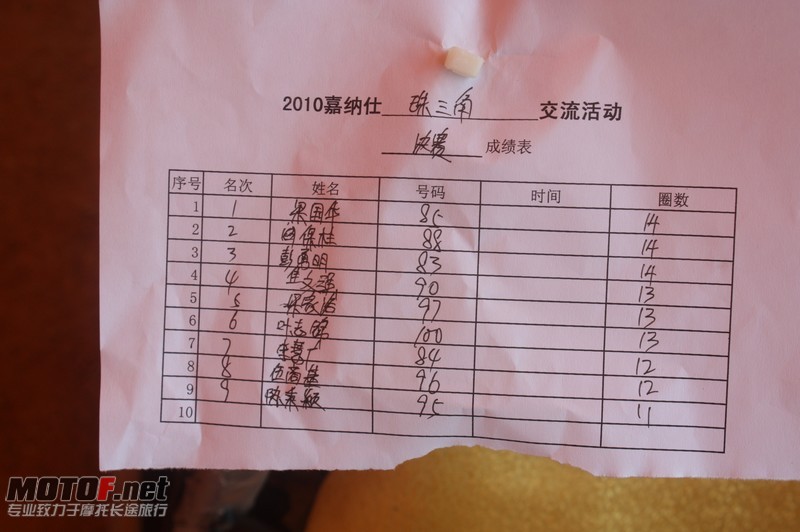 2010嘉纳仕 珠三角 交流活动
决赛 成绩表
序号 名次 姓名 号码 时间 圈数
1 1 梁国华 85 14
2 2 田保桂 88 14
3 3 彭勇明 83 14
4 4 文强 90 13
5 5 梁家浩 97 13
6 6 叶志锦 100 13
7 7 84 12
8 8 96 12
9 9 陈 95 11
10
MOTOF.net
专业致力于摩托长途旅行